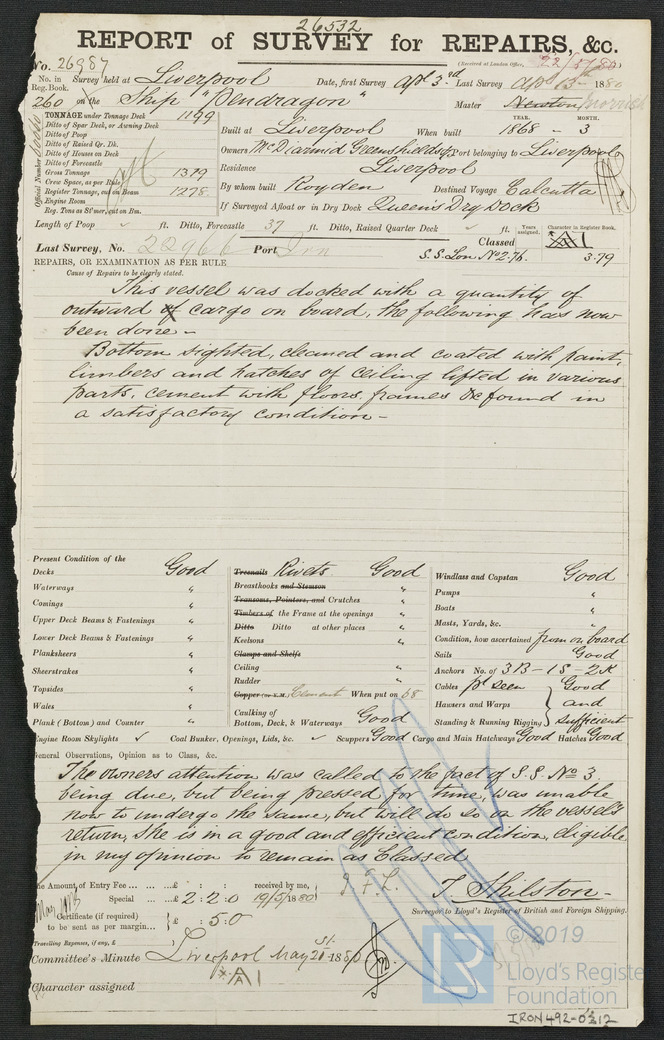 26532
REPORT of SURVEY for REPAIRS, &c.
No. 26987 (Received at London Office, 22/5/80)
No. in Reg. Book. Survey held at Liverpool Date, first Survey Apl 3rd Last Survey Apl 13th 1880
260 on the Ship "Pendragon" Master Newton
TONNAGE under Tonnage Deck 1199
Ditto of Spar Deck, or Awning Deck
Ditto of Poop
Ditto of Raised Qr. Dk.
Ditto of Houses on Deck
Ditto of Forecastle
Gross Tonnage 1379
Crew Space, as per Rule
Register Tonnage, cut on Beam 1278
Engine Room
Reg. Tons as St'mer, cut on Bm.
Official Number
Built at Liverpool When built YEAR. 1868 MONTH. 3
Owners McDiarmid Greenshields & Co Port belonging to Liverpool
Residence Liverpool
By whom built Royden Destined Voyage Calcutta
If Surveyed Afloat or in Dry Dock Queen's Dry Dock
Length of Poop " ft. Ditto, Forecastle 37 ft. Ditto, Raised Quarter Deck " ft.
Years assigned. Character in Register Book.
Last Survey, No. 22966 Port Irn Classed A1
S.S. Lon No 2. 76. 3.79
REPAIRS, OR EXAMINATION AS PER RULE
Cause of Repairs to be clearly stated.
This vessel was docked with a quantity of
outward of cargo on board, the following has now
been done –
Bottom sighted, cleaned and coated with paint,
limbers and hatches of ceiling lifted in various
parts, cement with floors, frames &c found in
a satisfactory condition –
Present Condition of the
Decks Good
Waterways "
Comings "
Upper Deck Beams & Fastenings "
Lower Deck Beams & Fastenings "
Planksheers "
Sheerstrakes "
Topsides "
Wales "
Plank (Bottom) and Counter "
Treenails Rivets Good
Breasthooks and Stemson "
Transoms, Pointers, and Crutches "
Timbers of the Frame at the openings "
Ditto Ditto at other places "
Keelsons "
Clamps and Shelfs
Ceiling "
Rudder "
Copper (or Y.M.) Cement When put on 68
Caulking of
Bottom, Deck, & Waterways Good
Windlass and Capstan Good
Pumps "
Boats "
Masts, Yards, &c. "
Condition, how ascertained from on board
Sails Good
Anchors No. of 3B – 1S – 2K
Cables pt seen Good
Hawsers and Warps and
Standing & Running Rigging sufficient
Engine Room Skylights ✓ Coal Bunker, Openings, Lids, &c. ✓ Scuppers Good Cargo and Main Hatchways Good Hatches Good
General Observations, Opinion as to Class, &c.
The owners attention was called to the fact of S.S. No 3
being due, but being pressed for time, was unable
now to undergo the same, but will do so on the vessel's
return, she is in a good and efficient condition, eligible
in my opinion to remain as Classed
The Amount of Entry Fee ... £ : : received by me,
Special ... £ 2:2:0 19/5/1880
Certificate (if required) to be sent as per margin... £ : 5.0
Travelling Expenses, if any, £
T. Shilston
Surveyor to Lloyd's Register of British and Foreign Shipping.
Committee's Minute Liverpool May 21st 1880
Character assigned A1
© 2019
LR
Lloyd's Register
Foundation
IRON 492-0312